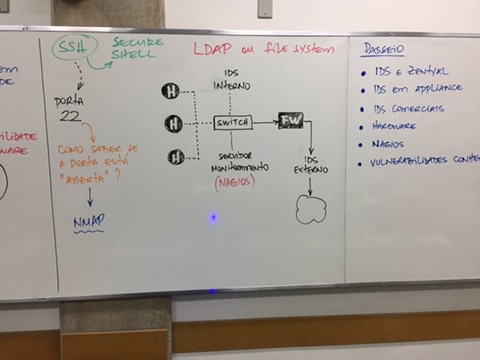 SSH
SECURE
SHELL
PORTA
22
COMO SABER SE
A PORTA ESTÁ
"ABERTA" ?
NMAP
LDAP ou file system
IDS
INTERNO
H
H
H
SWITCH
FW
SERVIDOR
MONITORAMENTO
(NAGIOS)
IDS
EXTERNO
PASSEIO
• IDS E ZENTYAL
• IDS EM APPLIANCE
• IDS COMERCIAIS
• HARDWARE
• NAGIOS
• VULNERABILIDADES